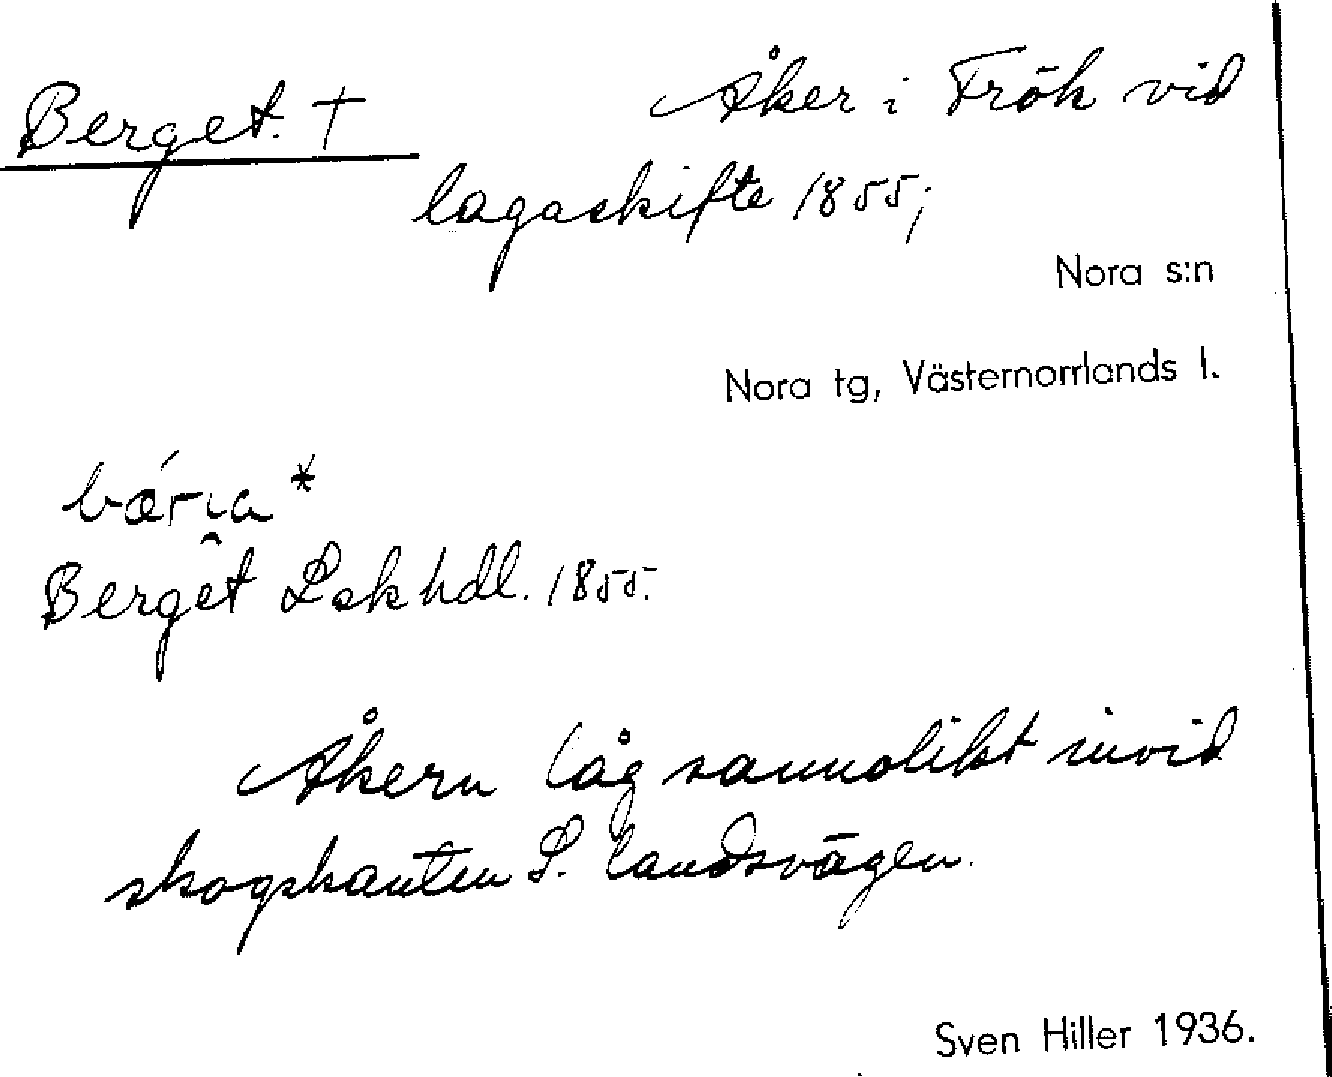 Berget. † Åker i Fröh vid
lagaskifte 1855;
Nora s:n
Nora tg, Västernorrlands l.
Berget Lskhdl. 1855.
Åkern låg sannolikt invid
skogskanten S. landsvägen.
Sven Hiller 1936.